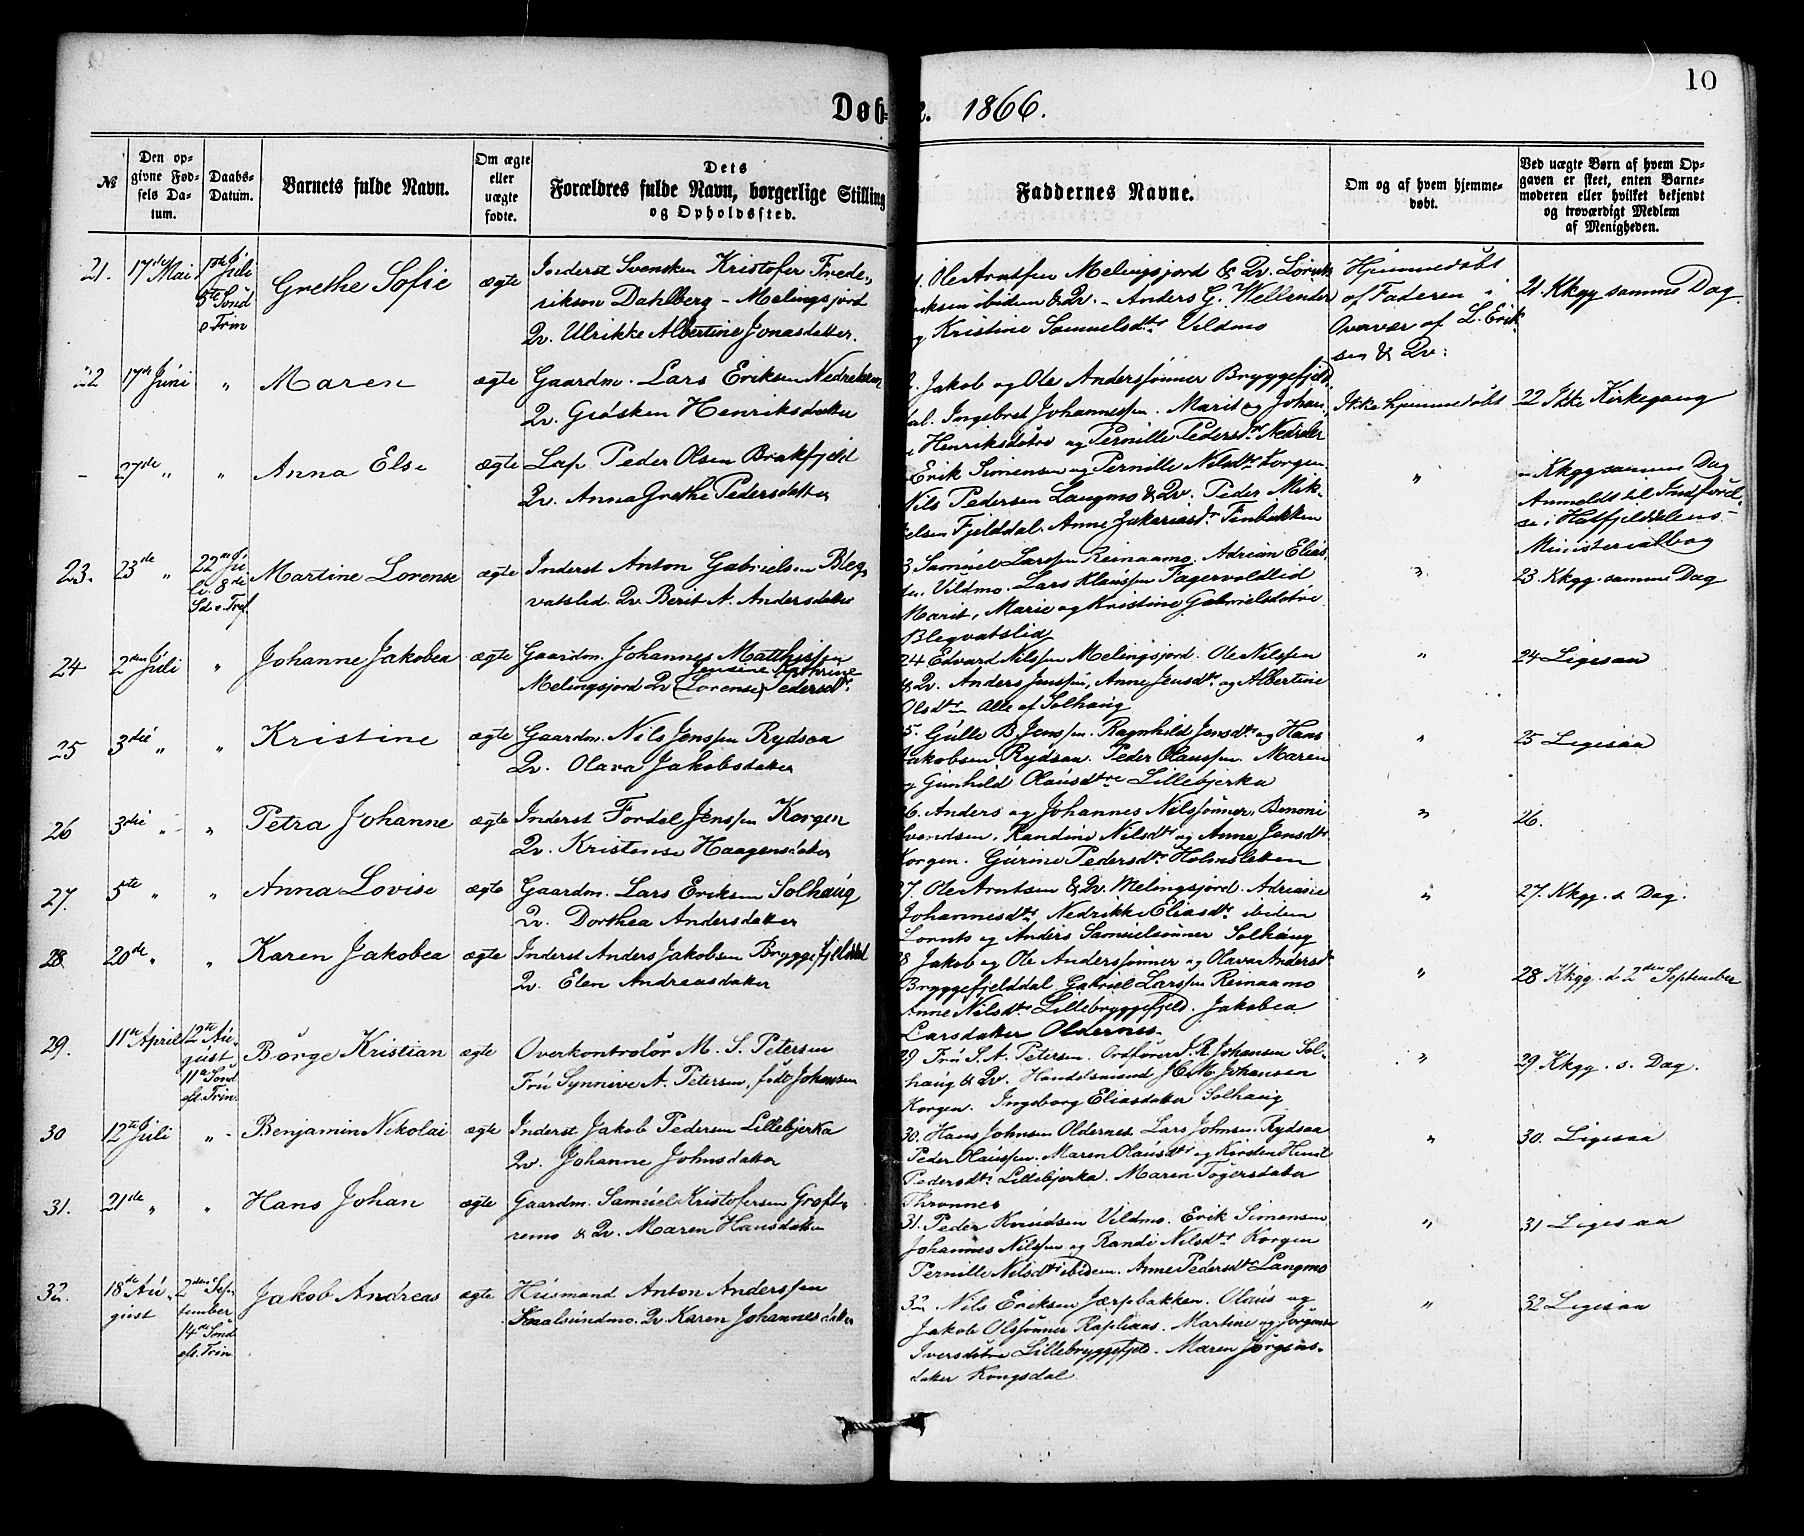 10
Døb- e. 1866.
№
Den op-
givne Fød-
sels Da-
tum.
Daabs-
Datum.
Barnets fulde Navn.
Om ægte
eller
uægte
fødte.
Dets
Forældres fulde Navn, borgerlige Stilling
og Opholdssted.
Faddernes Navne.
Om og af hvem hjemme-
døbt.
Ved uægte Børn af hvem Op-
gaven er skeet, enten Barne-
moderen eller hvilket bekjendt
og troværdigt Medlem
af Menigheden.
21. 17de Mai
1ste Juli
5te Sønd
e. Trin
Grethe Sofie
ægte
Inderst Svensken Kristofer Frede-
rikson Dahlberg - Melingsjord
Qv. Ulrikke Albertine Jonasdatter.
Ole Arntsen Melingsjord & Qv. Lornts
Eriksen ibidem & Qv. - Anders G. Wellender
og Kristine Samuelsdtr Vildmo
Hjemmedøbt
af Faderen i
Overvær af L. Erik-
sen & Qv:
21. Kkgg samme Dag.
22 17de Juni " Maren ægte
Gaardm. Lars Eriksen Nedrekorgen
Qv. Grøsken Henriksdatter
Jakob og Ole Anderssønner Bryggefjeld-
dal. Ingebret Johannessen. Marit og Johan-
e Henriksdøtre og Pernille Pedersdtr Nedrekor
Ikke hjemmedøbt
22 Ikke Kirkegang
- 27de " " Anna Else ægte
Lap. Peder Olsen Brakfjeld
Qv. Anna Grethe Pedersdatter
Erik Simensen og Pernille Nilsdtr Korgen
Nils Pedersen Langmo & Qv. Peder Mik-
kelsen Fjelddal. Anne Zakariasdr Finbakken
"
- Kkgg samme Dag
Anmeldt til Indførel-
se i Hatfjelddalens
Ministerialbog
23. 23de "
22de Ju-
li. 8de
Sd. e. Tref.
Martine Lorense ægte
Inderst Anton Gabrielsen Bleg-
vatslid. Qv. Berit A. Andersdatter
3 Samuel Larssen Reinaamo. Adrian Elias-
sen Vildmo. Lars Klaussen Fagervoldlid
Marit, Marie og Kristine Gabrielsdøtre
Blegvatslid
"
23. Kkgg. samme Dag
24 2den Juli " Johanne Jakobea. ægte
Gaardm. Johannes Matthissen
Jensine Kathrine
Melingsjord Qv (Lorense) Pedersdtr.
24 Edvard Nilssen Melingsjord. Ole Nilssen
& Qv. Anders Jenssen, Anne Jensdtr og Albertine
Olsdtr Alle af Solhaug
"
24 Ligesaa
25 3die " " Kristine ægte
Gaardm. Nils Jenssen Rydsaa
Qv. Olava Jakobsdatter
5. Gulle B. Jenssen. Ragnhild Jensdtr og Hans
Jakobsen Rydsaa. Peder Olaussen. Maren
og Gunhild Olausdtre Lillebjerka
"
25 Ligesaa
26 3die " " Petra Johanne ægte
Inderst Fordel Jenssen Korgen
Qv. Kristense Haagensdatter
26. Anders og Johannes Nilssønner, Benoni
Svendsen, Randine Nilsdtr og Anne Jensdtr
Korgen. Gurine Pedersdtr Holmsletten
"
26.
27. 5te " " Anna Lovise ægte
Gaardm. Lars Eriksen Solhaug
Qv. Dorthea Andersdatter
27. Ole Arntsen & Qv. Melingsjord. Adriane
Johannesdtr Nedrikke Eliasdtr ibidem
Lornts og Anders Samuelsønner Solhaug
"
27. Kkgg. s. Dag.
28 20de " " Karen Jakobea ægte
Inderst Anders Jakobsen Bryggefjelddal
Qv. Elen Andreasdatter
8 Jakob og Ole Anderssønner og Olava Andersdr
Bryggefjelddal. Gabriel Larssen Reinaamo
Anne Nilsdtr Lillebryggefjeld. Jakobea
Larsdatter Oldernes.
"
28 Kkgg. d. 2den September
29. 11te April
12te Au-
gust
11te Sønd
eft. Trin.
Børge Kristian ægte
Overkontrolør M. S. Petersen
Fru Synnive A. Petersen, født Johansen
29 Fru S. A. Petersen. Ordfører J. R. Johansen Sol-
haug & Qv. Handelsmand J. C. M. Johansen
Korgen. Ingeborg Eliasdatter Solhaug
"
29. Kkgg. s. Dag.
30 12te Juli " Benjamin Nikolai ægte
Inderst Jakob Pedersen Lillebjerka
Qv. Johanne Johnsdatter
30. Hans Johnsen Oldernes. Lars Johnsen Rydsaa
Peder Olaussen. Maren Olausdtr og Kirsten
Pedersdtr Lillebjerka. Maren Togersdatter
Thronnes
"
30. Ligesaa
31. 21de " " Hans Johan ægte
Gaardm. Samuel Kristofersen Groft-
remo & Qv. Maren Hansdatter
31. Peder Knudsen Vildmo. Erik Simensen
Johannes Nilssen og Randi Nilsdtr Korgen
Pernille Nilsdtr ibidem. Anne Pedersdtr Langmo
"
31 Ligesaa
32. 18de Au-
gust
2den Sep-
tember
14de Sønd
eft. Trin
Jakob Andreas ægte
Husmand Anton Anderssen
Staalsundmo. Qv. Karen Johannesdatter
32. Nils Eriksen Jærpbakken. Olaus og
Jakob Olssønner Rapliaas. Martine og Jørgine
Iversdøtre Lillebryggefjeld. Maren Jørgens-
datter Kongsdal.
"
32 Ligesaa